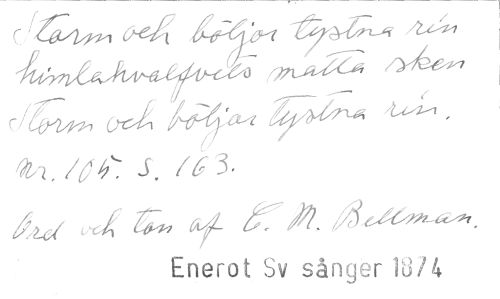 Storm och böljor tystna ren
himlahvalfvets matta sken
Storm och böljor tystna ren.
nr. 105. S. 163.
Ord och ton af C. M. Bellman.
Enerot Sv sånger 1874